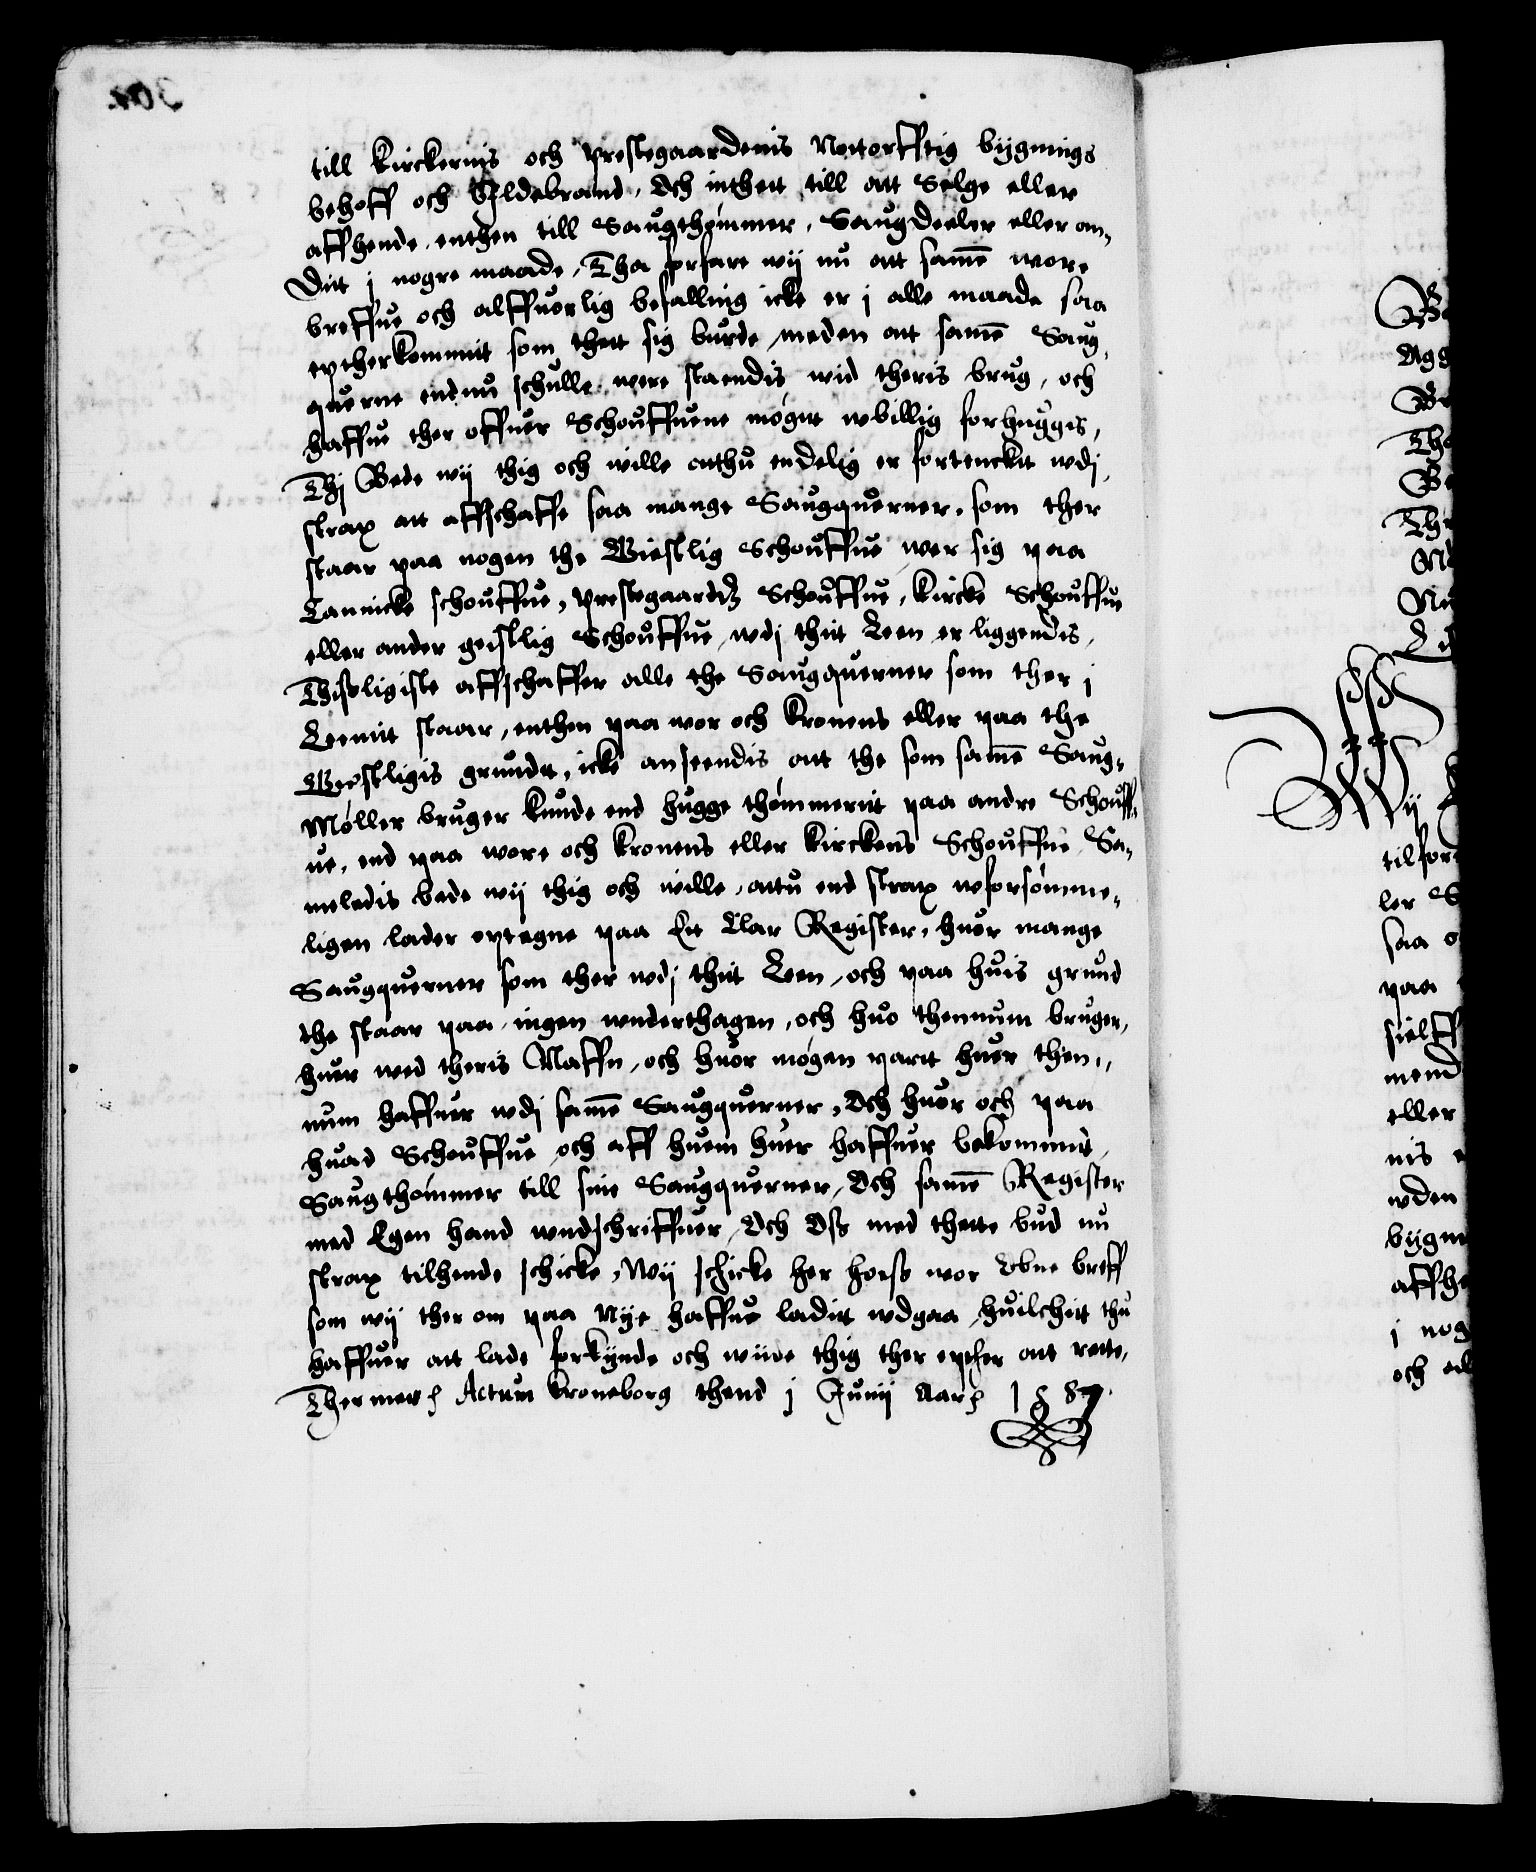 till Kirckernis och prestegaardenis Nøttorfftig bygnings
behoff och Ildebrand, Och inthett till att Selge eller
affhende, enthen till Saugthømmer, Saugdeeler eller an,
dit j nogre maade, Tha forfare wij nu att samē wore
breffue och alffuorlig befalling icke er j alle maade saa
eptherkommit som thett sig burde, meden att samē Saug,
querne endnu schulle were staendis wid theris brug, och
haffue ther offuer Schouffuene møgit wbillig forhuggis,
Thj Bede wij thig och wille atthu endelig er fortenckt wdj,
strax att affschaffe saa mange Saugquerner, som ther
staar paa nogen the Giestlig Schouffue, wer sig paa
Cannicke schouffue, prestegaards Schouffue, Kircke Schouffue
eller ander geistlig Schouffue, wdj thit Leen er liggendis,
Thisligiste affschaffer alle the Saugquerner som ther j
Leenit staar, enthen paa wor och Kronens eller paa the
Geistligis grundt, icke anseendis att the som samē Saug,
Møller bruger kunde end hugge thømmerit paa andre Schouff,
ue, end paa wore och Kronens eller Kirckens Schouffue, Sa,
meledis bede wij thig och wille, attu end strax wforsømme,
ligen lader optegne paa Eit Clar Register, huor mange
Saugquerner som ther wdj thit Leen, och paa huis grund
the staar paa, ingen wnderthagen, och huo thennum bruger,
huer wed theris Naffn, och huor møgen part huer then,,
num haffuer wdj samē Saugquerner, Och huor och paa
huad Schouffue och aff huem huer haffuer bekommit,
Saugthømmer till sine Saugquerner, Och samē Register
med Egen hand wndschriffuer, Och Oss med thette bud nu
strax tilhende schicke, Wij schicke her hoess wor Obne breff
som wij ther om paa Nye haffue ladit wdgaa, huilchitt thu
haffuer att lade forkynde och wiide thig ther epther att rette,
Ther mett Actum Kroneborg thend j Junij Aar 1587.